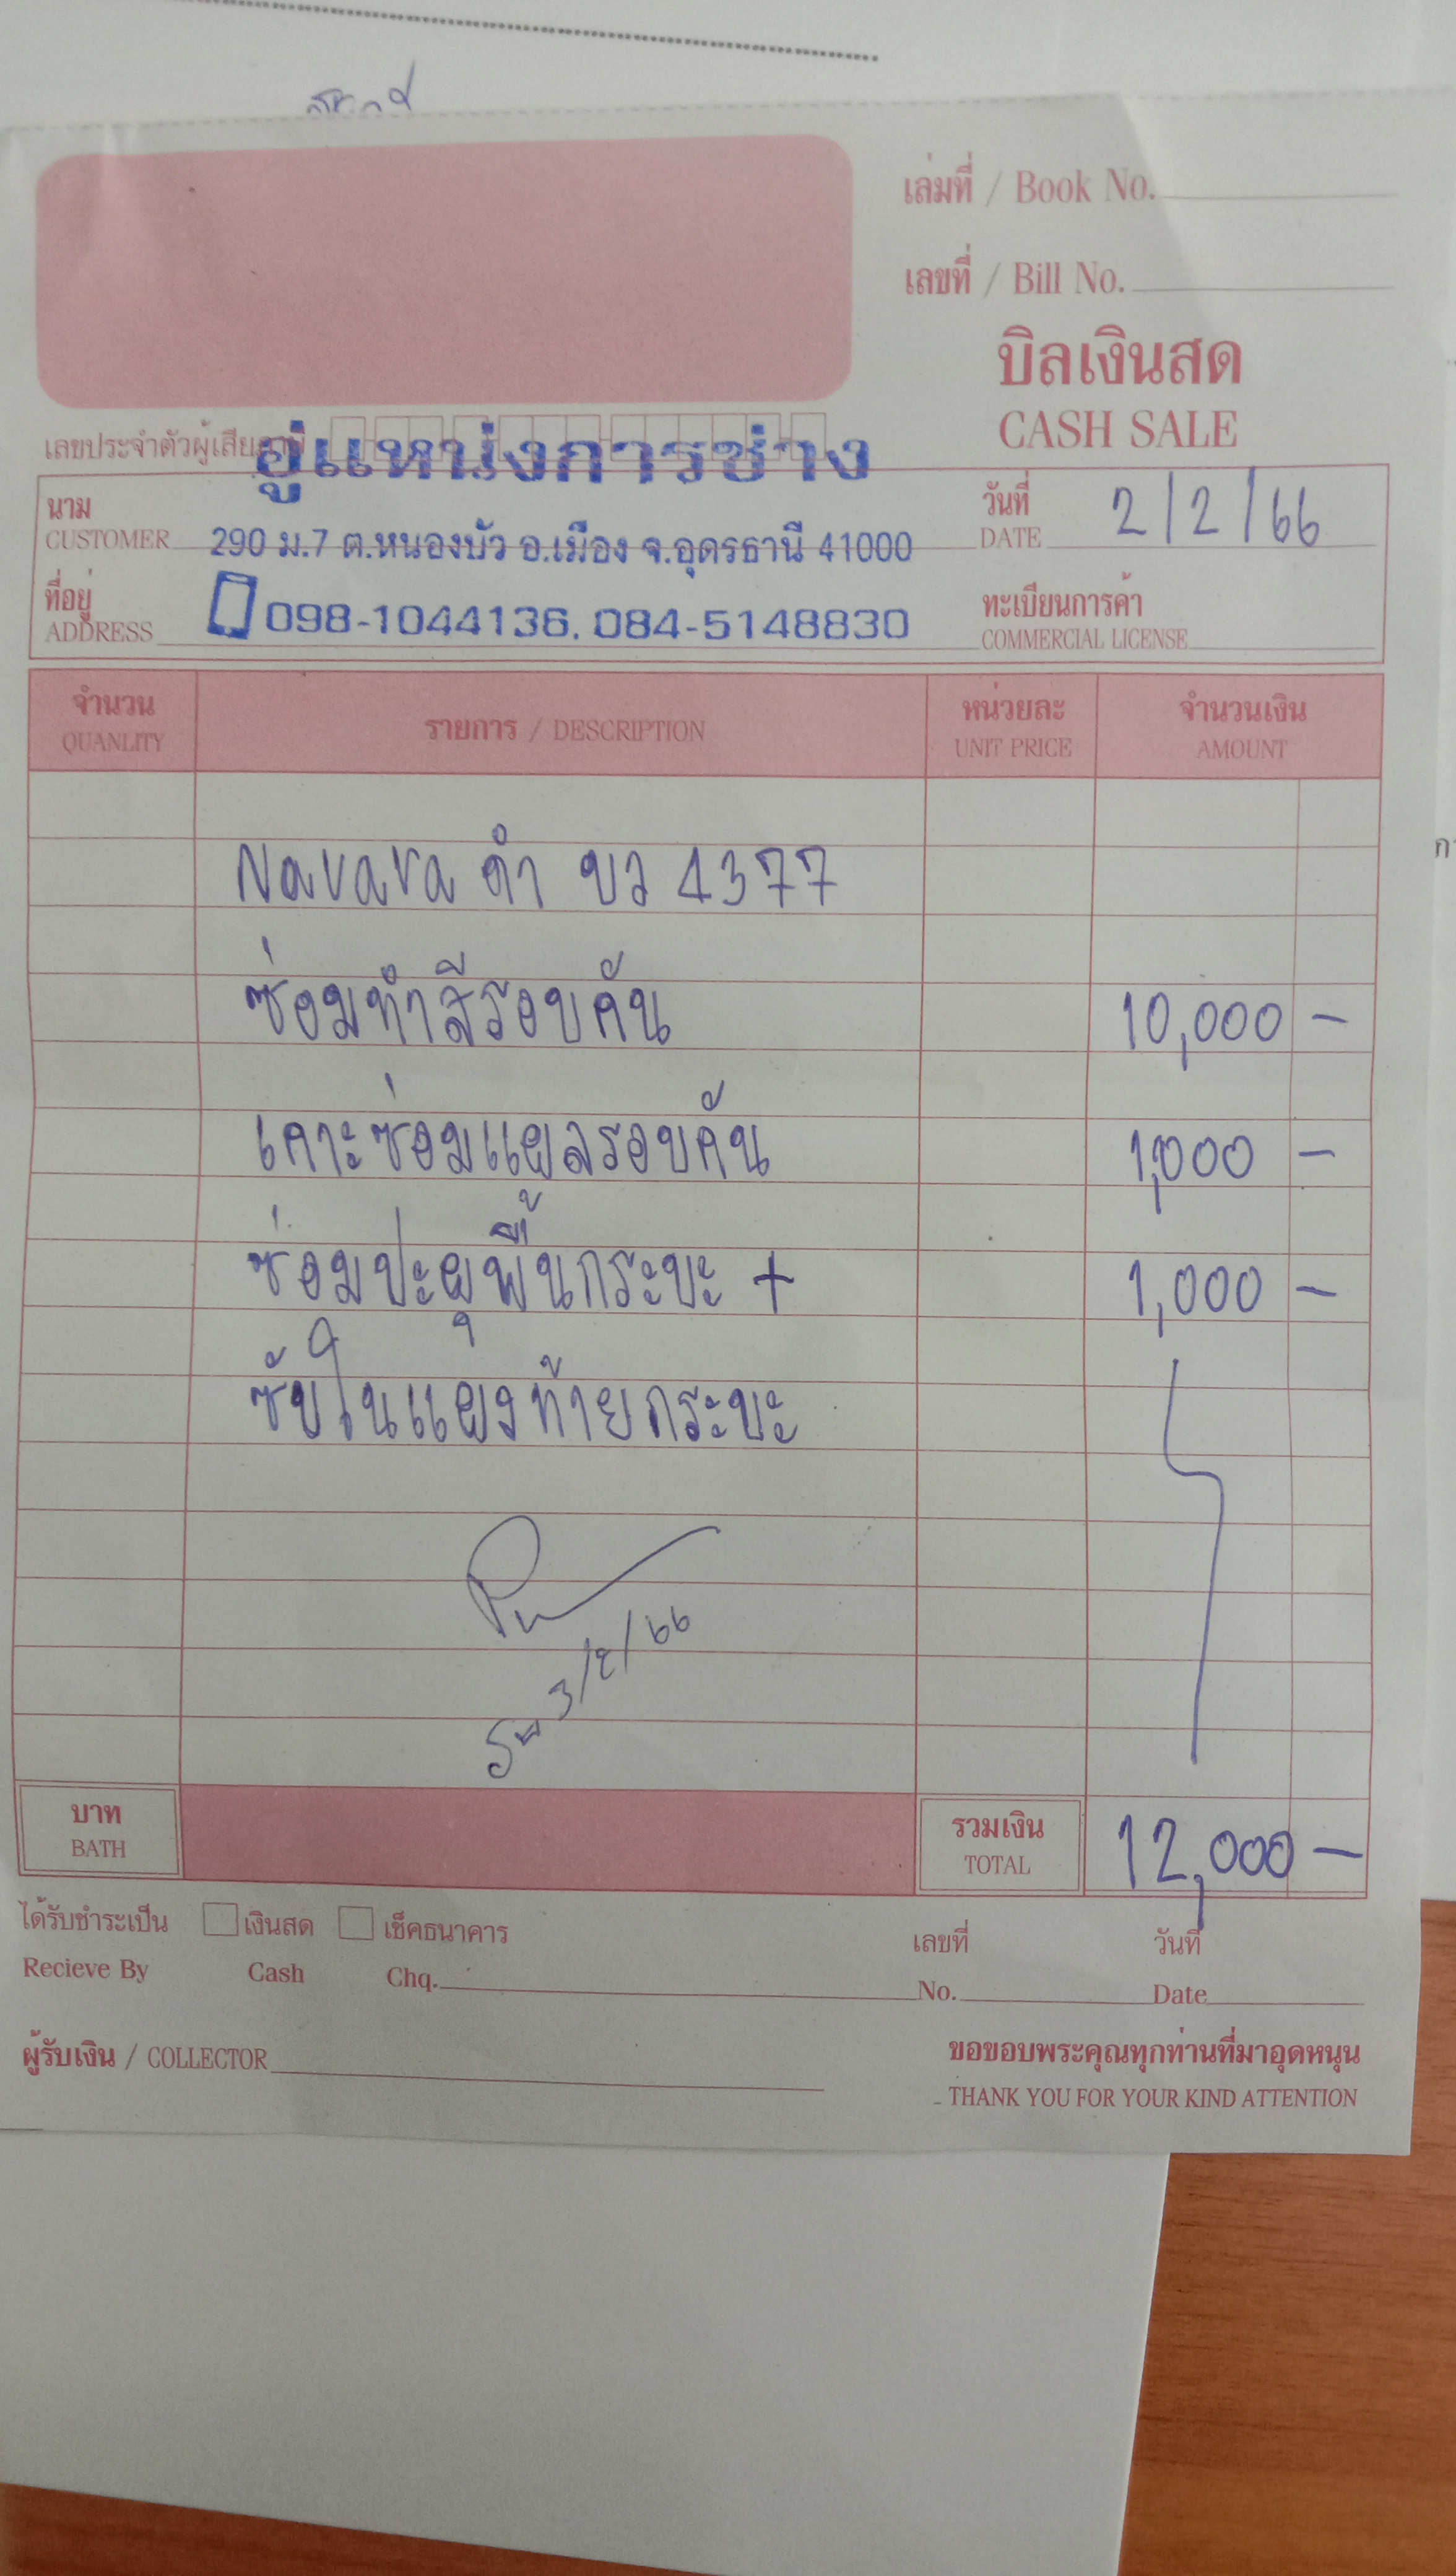 เล่มที่ / Book No.
เลขที่ / Bill No.
บิลเงินสด
CASH SALE
เลขประจำตัวผู้เสียภาษี
อู่แหน่งการช่าง
นาม
CUSTOMER
290 ม.7 ต.หนองบัว อ.เมือง จ.อุดรธานี 41000
วันที่
DATE
2/2/66
ที่อยู่
ADDRESS
098-1044136, 084-5148830
ทะเบียนการค้า
COMMERCIAL LICENSE
จำนวน รายการ / DESCRIPTION หน่วยละ จำนวนเงิน
QUANLITY UNIT PRICE AMOUNT
Navara ดำ ขว 4377
ซ่อมทำสีรอบคัน 10,000 -
เคาะซ่อมแผลรอบคัน 1,000 -
ซ่อมปะผุพื้นกระบะ + 1,000 -
ซับในแผงท้ายกระบะ
3/2/66
บาท
BATH
รวมเงิน
TOTAL
12,000 -
ได้รับชำระเป็น เงินสด เช็คธนาคาร เลขที่ วันที่
Recieve By Cash Chq. No. Date
ผู้รับเงิน / COLLECTOR
ขอขอบพระคุณทุกท่านที่มาอุดหนุน
THANK YOU FOR YOUR KIND ATTENTION